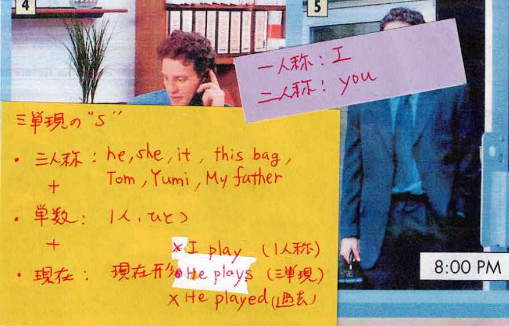 4
5
一人称: I
二人称: you
三単現の"S"
・三人称: he, she, it, this bag,
+ Tom, Yumi, My father
・単数: 1人, ひとつ
+
× I play (1人称)
・現在: 現在形 ○He plays (三単現)
× He played (過去)
8:00 PM